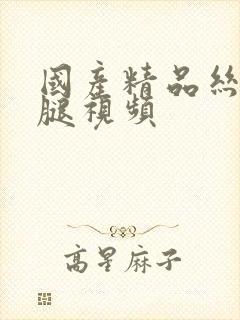 國産精品絲
腿視頻
高星麻子